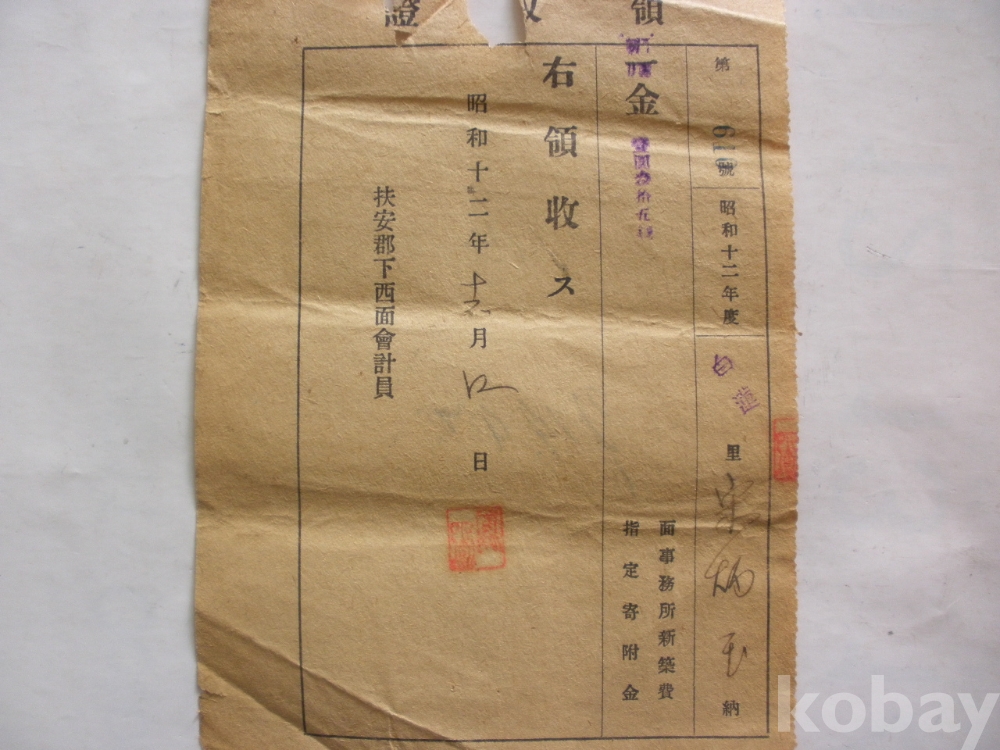 領 證
第 619 號 昭和十二年度 里 納
面事務所新築費
指定寄附金
一金 壹圓參拾五錢
右領收ス
昭和十二年十二月 日
扶安郡下西面會計員
kobay